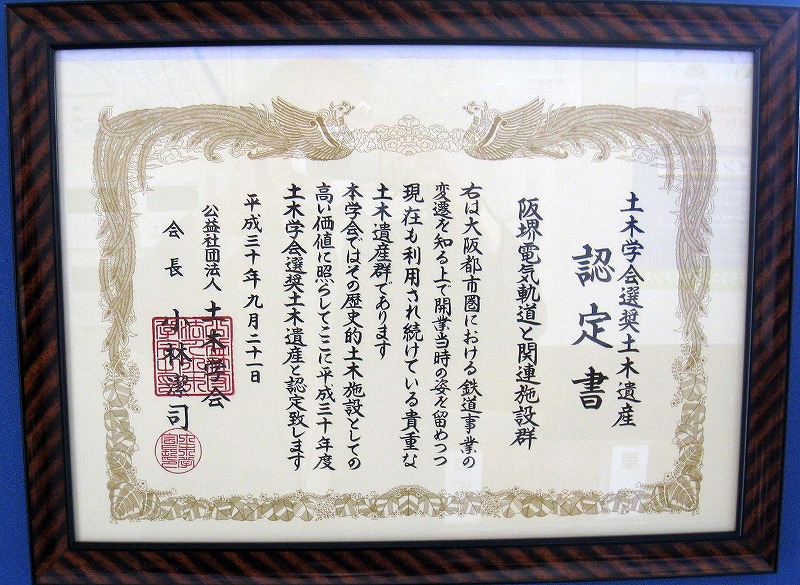 土木学会選奨土木遺産
認定書
阪堺電気軌道と関連施設群
右は大阪都市圏における鉄道事業の
変遷を知る上で開業当時の姿を留めつつ
現在も利用され続けている貴重な
土木遺産群であります
本学会ではその歴史的土木施設としての
高い価値に照らしてここに平成三十年度
土木学会選奨土木遺産と認定致します
平成三十年九月二十一日
公益社団法人 土木学会
会長 小林潔司